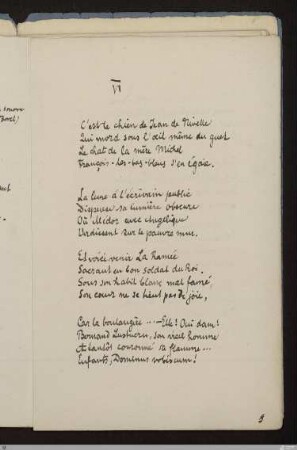 VI
C'est le chien de Jean de Nivelle
Qui mord sous l'œil même du guet
Le chat de la mère Michel
François-les-bas-bleus s'en égaie.
La lune à l'écrivain public
Dispense sa lumière obscure
Où Médor avec Angélique
Verdissent sur le pauvre mur.
Et voici venir La Ramée
Sacrant en bon soldat du Roi.
Sous son habit blanc mal famé,
Son cœur ne se tient pas de joie,
Car la boulangère .... — Elle? Oui dam!
Bernant Lustucru, son vieil homme
A tantôt couronné sa flamme...
Enfants, Dominus vobiscum!
9